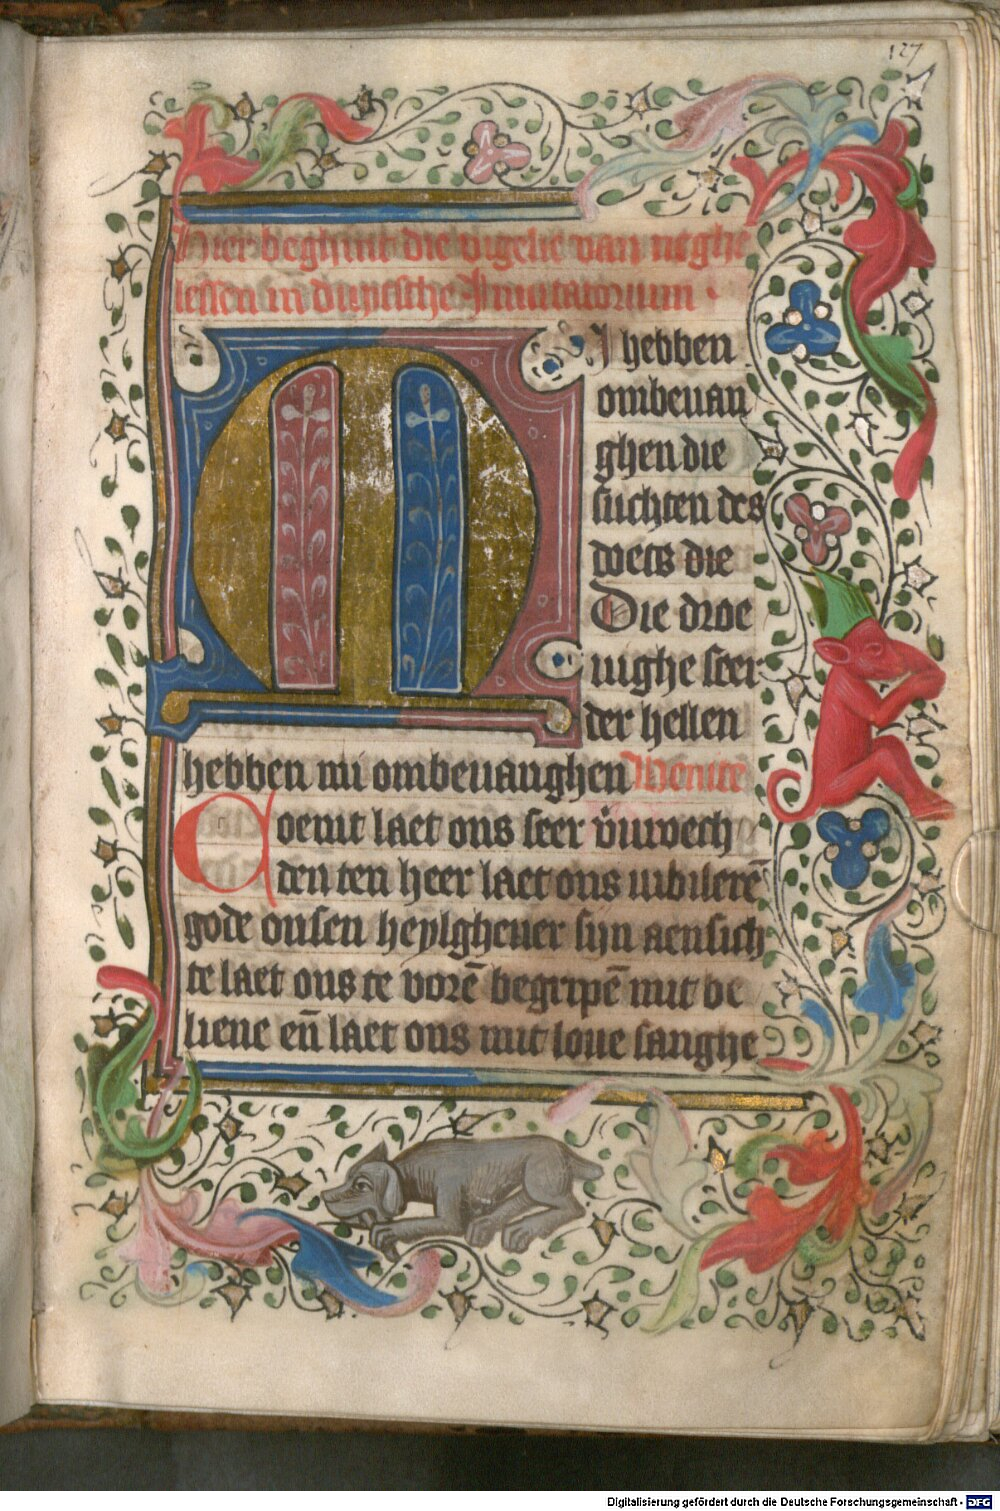 127
Hier beghint die vigelie van neghe
lessen in duytsche Inuitatorium ·
MI hebben
ombeuan
ghen die
suchten des
doets die
Die droe
uighe seer
der hellen
hebben mi ombeuanghen Venite
Coemt laet ons seer v̄urvech
den ten heer laet ons iubilerē
gode onsen heylgheuer sijn aensich
te laet ons te vorē begripē mit be
lieue eñ laet ons mit loue sanghe
Digitalisierung gefördert durch die Deutsche Forschungsgemeinschaft - DFG